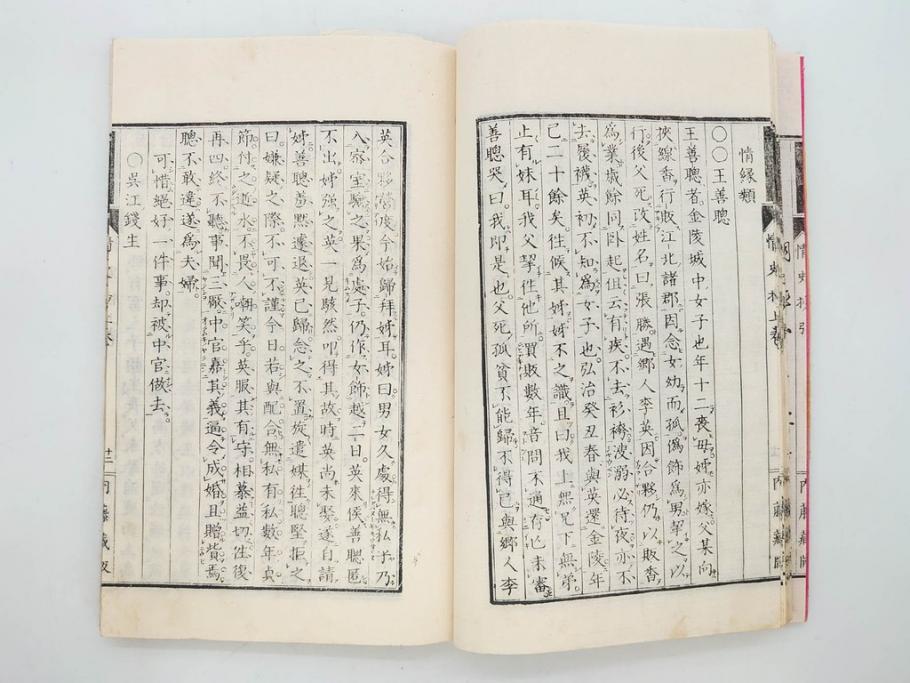 情緣類
〇〇王善聰
王善聰者金陵城中女子也年十二喪毋姊亦嫁父某向
線香行販江北諸郡因念女幼而孤僞飾爲男挈之以
行後父死改姓名曰張勝遇鄉人李英因合夥仍以販香
爲業歲餘同卧起但云有疾不去衫襪溲溺必待夜亦不
去履襪英初不知爲女子也弘治癸丑春與英還金陵年
已二十餘矣往候其姊姊不之識且曰我上無兄下無弟
止有妹耳我父挈往他所買販數年音問不通存亡未審
善聰哭曰我卽是也父死孤貧不能歸不得已與鄉人李
英合夥營度今始歸拜姊耳姊曰男女久處得無私乎乃
入密室驗之果爲處子仍作女飾越二日英來候善聰匿
不出姊强之英一見駭然叩得其故時英尚未娶遂自請
姊善聰羞避退英已歸念之不置旋遣媒往聰堅拒之
曰嫌疑之際不可不謹今日若與配合無私有私數年貞
節付之逝水不畏人嘲笑乎英服其有守相慕益切往復
再四終不聽事聞三厰中官嘉其義逼令成婚且贈貲焉
聰不敢違遂爲夫婦
可惜絕好一件事却被中官做去
〇吳江錢生
情史抄上卷
內藤藏版